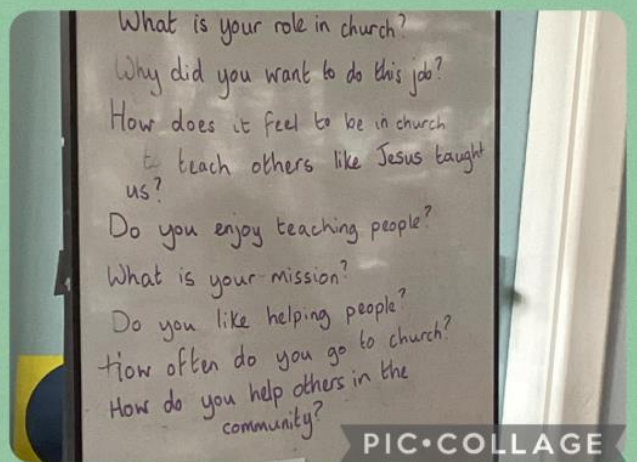 What is your role in church?
Why did you want to do this job?
How does it feel to be in church
to teach others like Jesus taught
us?
Do you enjoy teaching people?
What is your mission?
Do you like helping people?
How often do you go to church?
How do you help others in the
community?
PIC•COLLAGE